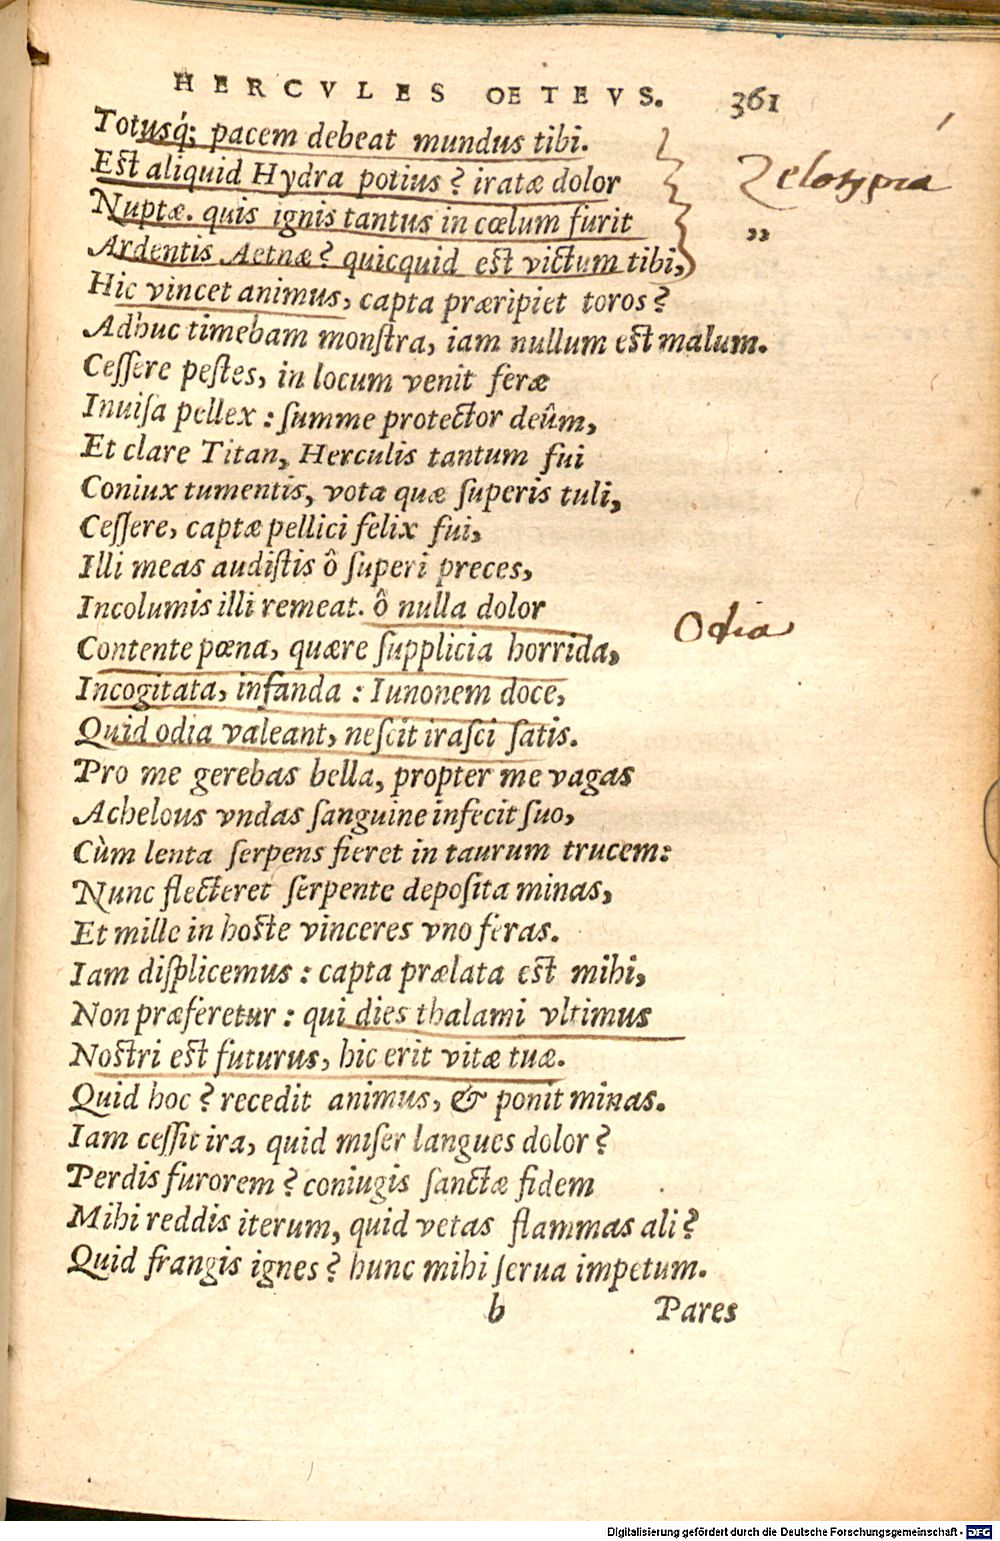 HERCVLES OETEVS. 361
Totusq́; pacem debeat mundus tibi.
Est aliquid Hydra potius? iratæ dolor
Zelotypia
Nuptæ. quis ignis tantus in cœlum furit
„
Ardentis Aetnæ? quicquid est victum tibi,
Hic vincet animus, capta præripiet toros?
Adhuc timebam monſtra, iam nullum est malum.
Ceſſere peſtes, in locum venit feræ
Inuiſa pellex: ſumme protector deûm,
Et clare Titan, Herculis tantum fui
Coniux tumentis, vota quæ ſuperis tuli,
Ceſſere, captæ pellici felix fui,
Illi meas audiſtis ô ſuperi preces,
Incolumis illi remeat. ô nulla dolor
Odia
Contente pœna, quære ſupplicia horrida,
Incogitata, infanda: Iunonem doce,
Quid odia valeant, neſcit iraſci ſatis.
Pro me gerebas bella, propter me vagas
Achelous vndas ſanguine infecit ſuo,
Cùm lenta ſerpens fieret in taurum trucem:
Nunc flecteret ſerpente depoſita minas,
Et mille in hoste vinceres vno feras.
Iam diſplicemus: capta prælata est mihi,
Non præferetur: qui dies thalami vltimus
Nostri est futurus, hic erit vitæ tuæ.
Quid hoc? recedit animus, & ponit minas.
Iam ceſſit ira, quid miſer langues dolor?
Perdis furorem? coniugis ſanctæ fidem
Mihi reddis iterum, quid vetas flammas ali?
Quid frangis ignes? hunc mihi ſerua impetum.
b Pares
Digitalisierung gefördert durch die Deutsche Forschungsgemeinschaft - DFG